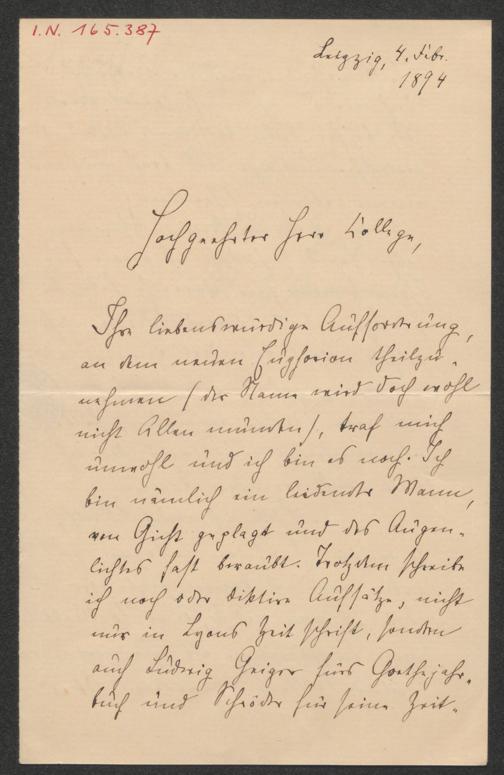 I.N. 165.387
Leipzig, 4. Febr.
1894
Hochgeehrter Herr College,
Ihre liebenswürdige Aufforderung,
an dem neuen Euphorion theilzu-
nehmen (der Name wird doch wohl
nicht Allen munden), traf mich
unwohl und ich bin es noch. Ich
bin nämlich ein leidender Mann,
von Gicht geplagt und des Augen-
lichtes fast beraubt. Trotzdem schreibe
ich noch oder diktire Aufsätze, nicht
nur in Lyons Zeitschrift, sondern
auch Ludwig Geiger fürs Goethejahr-
buch und Schröder für seine Zeit-